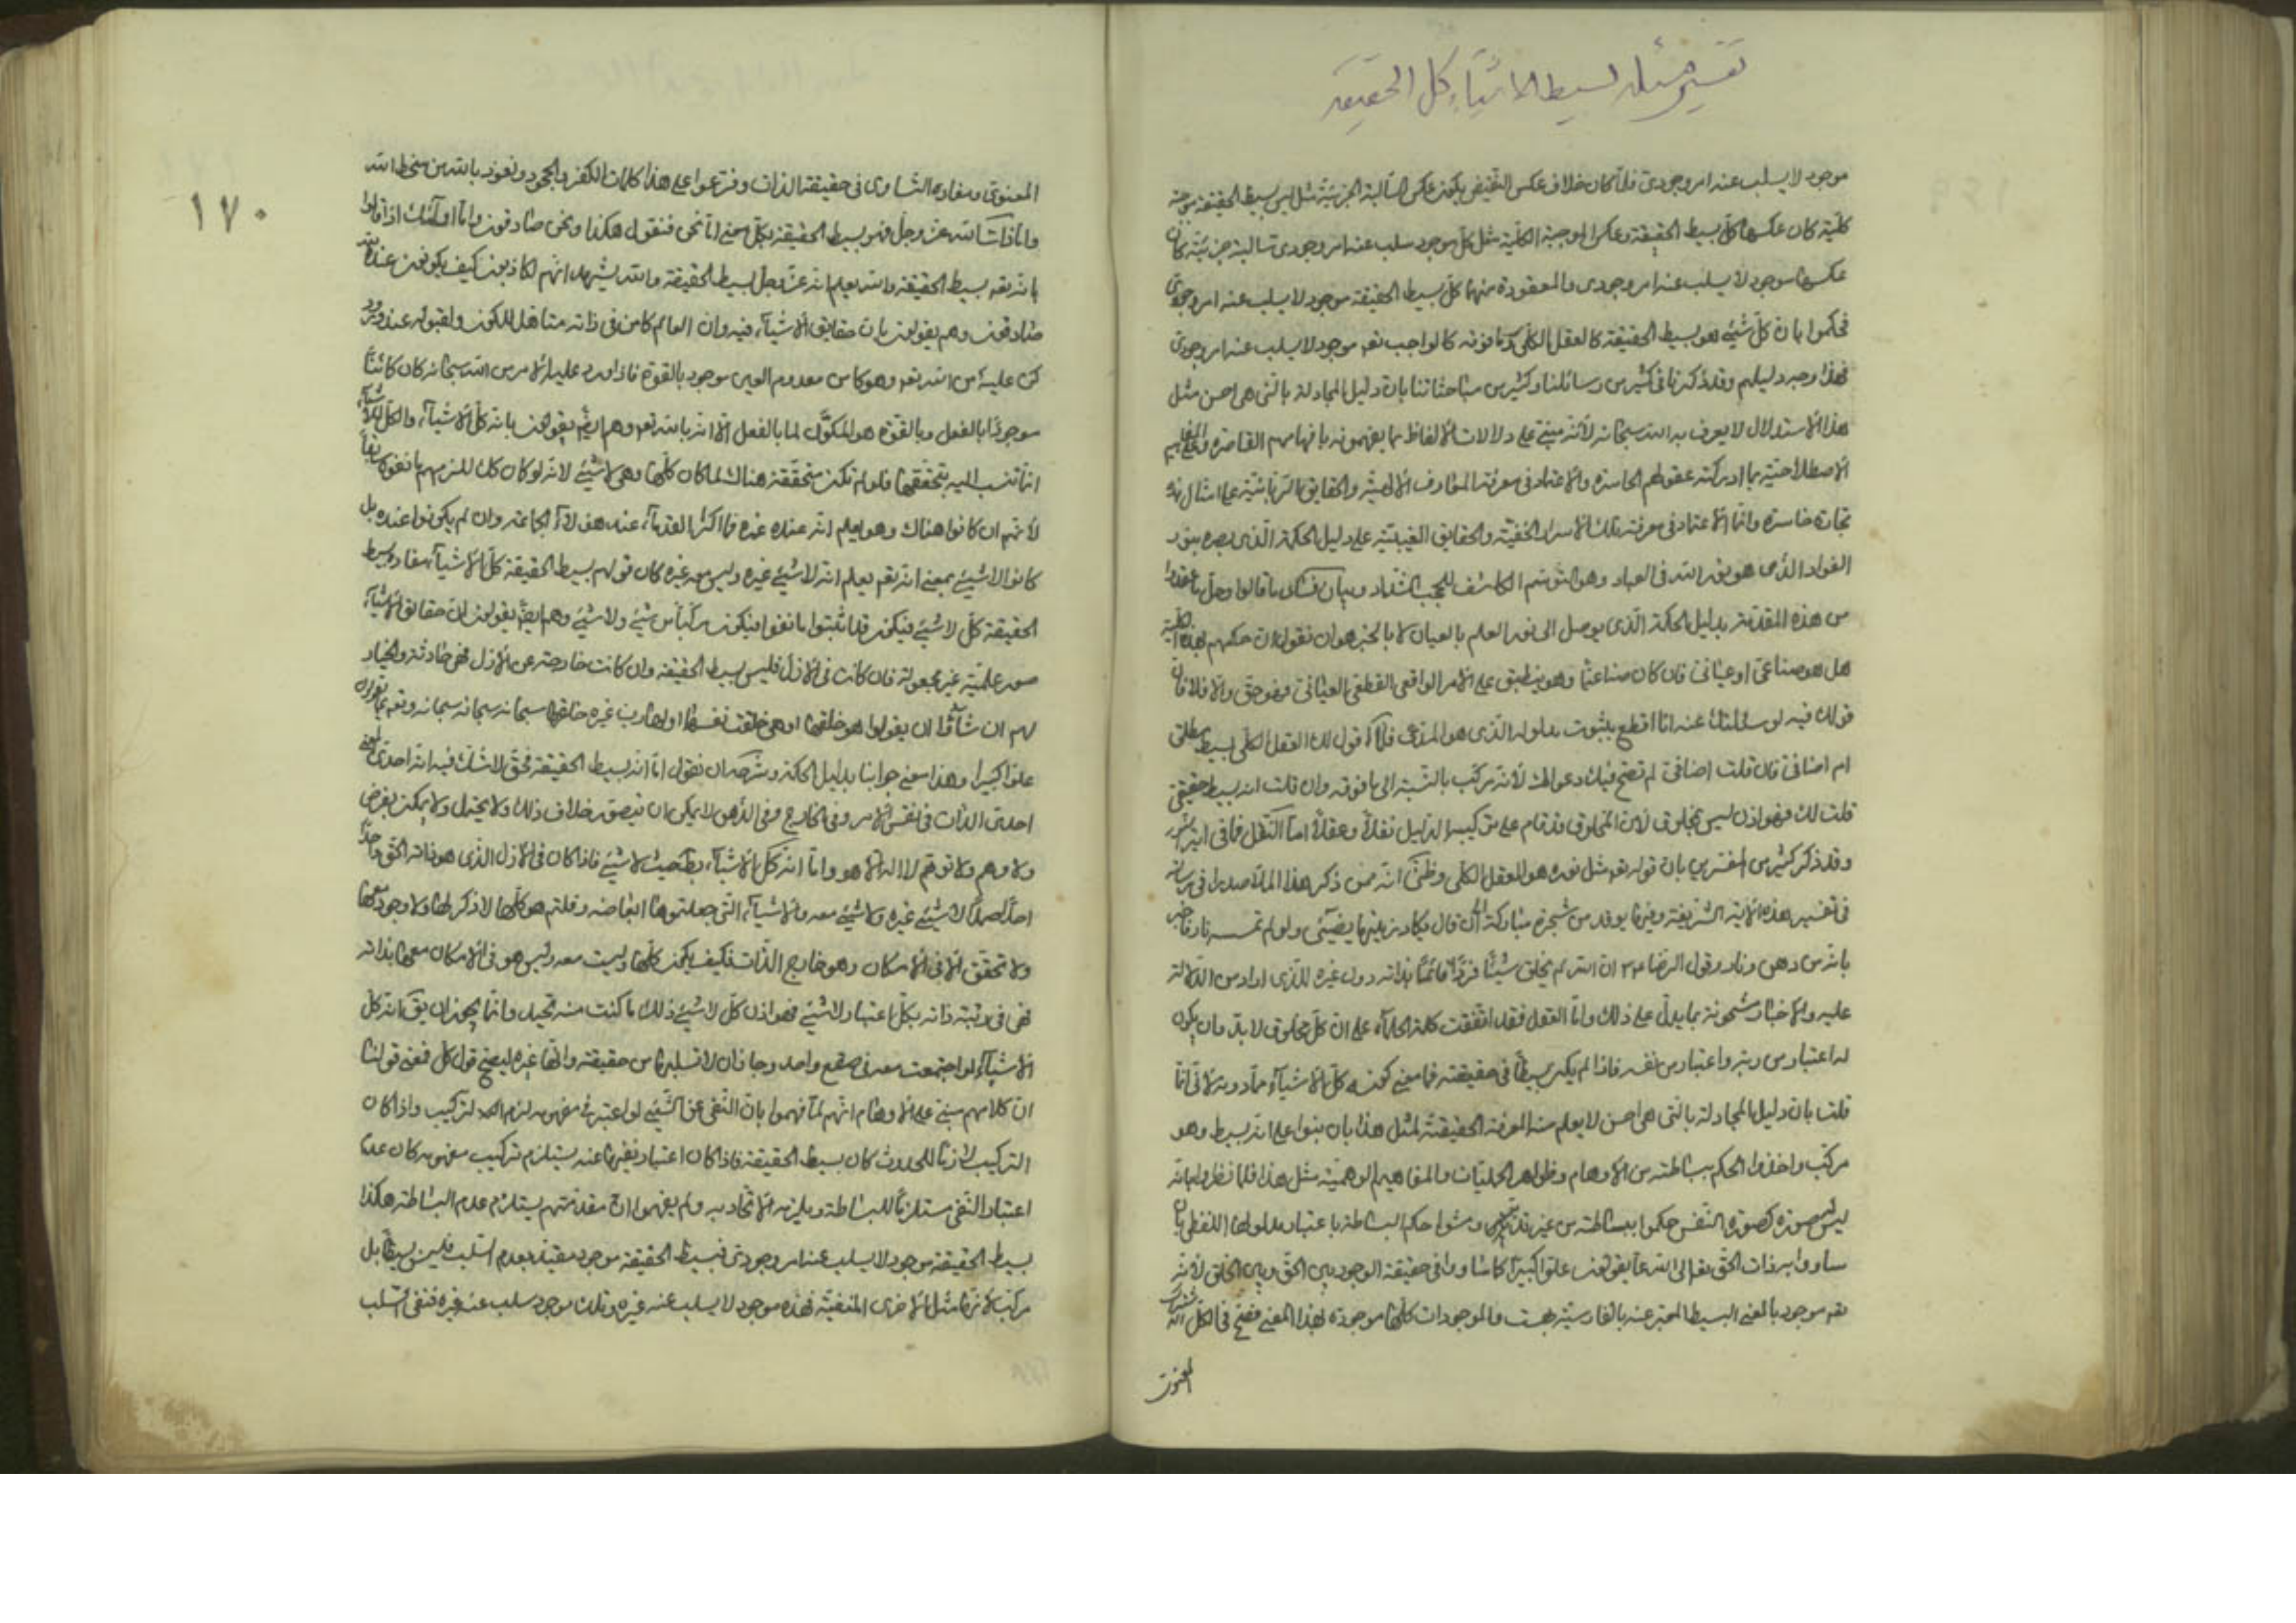 تفسير مسئله بسيط الاشيآء كل الحقيقة
موجود لا يسلب عنه امر وجودى فلمّا كان خلاف عكس النقيض يكون عكس السالبة الجزئيّة مثل ليس بسيط الحقيقة موجبة
كليّة كان عكسها كلّ بسيط الحقيقة وعكس الموجبة الكليّة مثل كلّ موجود سلب عنه امر وجودى سالبة جزئيّة كان
عكسها موجود لا يسلب عنه امر وجودى والمعقودة منهما كلّ بسيط الحقيقة موجود لا يسلب عنه امر وجودى
فحكموا بان كلّ شىء هو بسيط الحقيقة كالعقل الكلى وما فوقه كالواجب تعه موجود لا يسلب عنه امر وجودى
فهذا وجه دليلهم وقد ذكرنا فى كثير من رسائلنا وكثير من مباحثاتنا بان دليل المجادلة بالتى هى احسن مثل
هذا الاستدلال لا يعرف به الله سبحانه لأنّه مبنى على دلالات الألفاظ بما يفهمونه بافهامهم القاصرة
الاصطلاحيّة بما ادركته عقولهم الحاسرة والاعتماد فى معرفة المعارف الالهيّة والحقايق الربّانيّة على امثال هذه
تجارة خاسرة وانّما الاعتماد فى معرفة تلك الاسرار الخفيّة والحقايق الغيبيّة على دليل الحكمة الّذى بصره بنور
الفواد الذى هو نور الله فى العباد وهو التوسّم الكاشف للحجب الشداد وبيان فساد ما قالوا وحلّ ما عقدوا
من هذه المقدّمة بدليل الحكمة الّذى يوصل الى نور العلم بالعيان لا بالخبر هو ان نقول ان حكمهم بهذه الكلّية
هل هو صناعى او عيانى فان كان صناعيّا وهو ينطبق على الامر الواقعى القطعى العيانى فهو حق والّا فلا فان
قولك فيه لو سئلتك عنه انا اقطع بثبوت مدلوله الّذى هو المدّعى فلا اقول لك العقل الكلّى بسيط مطلق
ام اضافى فان قلت اضافى لم تصح فيك دعواك لأنّه مركّب بالنّسبة الى ما فوقه وان قلت انه بسيط حقيقى
قلت لك فهو اذن ليس بمخلوق لأن المخلوق قد قام على تركيبه الدليل نقلاً وعقلاً امّا النقل فما فى
وقد ذكر كثير من المفسرين بان قوله تعه مثل نوره هو العقل الكلى وظنّى انّه ممّن ذكر هذا الملّا صدرا فى
فى تفسير هذه الآية الشّريفة وفيها يوقد من شجرة مباركة الى ان قال يكاد زيتها يضيئ ولو لم تمسسه نار فاخبر
بانّه من دهن ونار وقول الرضا ع ان الله لم يخلق شيئا فردا قائما بذاته دون غيره للّذى اراد من الدّلالة
عليه والاخبار مشحونة بما يدلّ على ذلك وامّا العقل فقد اتفقت كلمة الحكمآء على انّ كلّ مخلوق لا بدّ وان يكون
له اعتبار من ربّه واعتبار من نفسه فاذا لم يكن بسيطاً فى حقيقته فما معنى كونه كلّ الاشيآء ممّا دونه لأنّى انما
قلت بان دليل المجادلة بالتى هى احسن لا يعلم منه المعرفة الحقيقيّة لمثل هذا بان بنوا على انه بسيط وهو
مركّب واخذوا الحكم ببساطته من الاوهام وظواهر الحليّات والمفاهيم الوهميّة مثل هذا فلما نظروا بانه
ليس بصورة كصورة النّفس حكموا ببساطته من غير تدبّر ومشوا حكم البساطة باعتبار مدلولها اللفظى بان
ساووا به ذات الحق تعالى الله عما يقولون علوّا كبيرا كما ساووا فى حقيقة الوجود بين الحق وبين الخلق لأنه
تعه موجود بالمعنى البسيط المعبّر عنه بالفارسيّة بهست والموجودات كلّها موجودة بهذا المعنى فصح فى الكلّ اشتراك
المعنوى
١٧٠
المعنوى ومفاده التساوى فى حقيقة الذات وفرّعوا على هذا كلمات الكفر والجحود ونعوذ بالله من سخط الله
وامّا ذات الله عز وجلّ فهو بسيط الحقيقة بكلّ معنى امّا نحن فنقول هكذا ونحن صادقون وامّا اولٓئك اذا قالوا
بانّه تعه بسيط الحقيقة والله يعلم انه عزّ وجلّ بسيط الحقيقة والله يشهد انّهم لكاذبون كيف يكونون عنده
صادقون وهم يقولون بان حقايق الاشيآء فيه وان العالم كامن فى ذاته متاهل للكون ولقبوله عند ورود
كن عليه من الله تعه وهو كامن معدوم العين موجود بالقوّة فاذا ورد عليه الامر من الله سبحانه كان كائنا
موجودا بالفعل وبالقوة هو المكوّن لما بالفعل الّا انّه بالله تعه وهم ايضا يقولون بانّه كلّ الاشيآء والكلّ
انما تنسب اليه بتحقّقها فلو لم تكن متحقّقة هناك لما كان كلّها وهى لا شىء لانّه لو كان كلّا للزمهم ما نفوه سابقا
لأنّهم ان كانوا هناك وهو يعلم انّه عنده غيره فما اكثر القدمآء عند هؤلآء الجماعة وان لم يكونوا عنده بل
كانوا لا شىء بمعنى انّه تعه يعلم انّه لا شىء غيره وليس معه غيره كان قولهم بسيط الحقيقة كلّ الاشيآء مفاده بسيط
الحقيقة كلّ لا شىء فيكون قد اثبتوا ما نفوا فيكون مركّبا من شىء ولا شىء وهم ايضا يقولون انّ حقايق الاشيآء
صور علميّة غير مجعولة فان كانت فى الأزل فليس بسيط الحقيقة وان كانت خارجة عن الازل فهى حادثة والخيار
لهم ان شآؤا ان يقولوا هو خلقها او هى خلقت نفسها او لها ربّ غيره خلقها سبحانه سبحانه سبحانه وتعه عمّا يقولون
علوّا كبيرا وهذا معنى جوابنا بدليل الحكمة وشرحه ان نقول امّا انه بسيط الحقيقة فحق لا شك فيه انه احدى المعنى
احدى الذات فى نفس الامر وفى الخارج وفى الذّهن لا يمكن ان يتصوّر خلاف ذلك ولا يحتمل ولا يمكن بفرض
ولا وهم ولا توهّم لا اله الّا هو وامّا انّه كلّ الاشيآء بطل حيث لا شىء فاذا كان فى الازل الذى هو ذاته الحق واحدا
احدا صمدا لا شىء غيره ولا شىء معه والاشيآء التى جعلتموها ابعاضه وقلتم هو كلّها لا ذكر لها ولا وجود معها
ولا تحقّق الّا فى الامكان وهو خارج الذّات فكيف يكون كلّها وليست معه وليس هو فى الامكان معها بذاته
فهى فى رتبة ذاته بكلّ اعتبار لا شىء فهو اذن كلّ لا شىء ذلك ما كنت منه تحيد وانّما يجوز ان يق انه كلّ
الاشيآء لو اجتمعت معه فى صقع واحد وجاز ان لا تسلبها من حقيقته وانّها غيره ليصحّ قول كلّ فمعنى قولنا
ان كلامهم مبنى على الاوهام انّهم لمّا فهموا بان النّفى عن الشّىء لو اعتبر فى مفهومه لزم التركيب واذا كان
التركيب لازما للحدوث كان بسيط الحقيقة فاذا كان اعتبار نفيها عنه يستلزم تركيب مفهومه كان عدم
اعتبار النّفى مستلزما للبساطة ويلزمه الاتّحاد به ولم يفهموا انّ مقدّمتهم يستلزم عدم البساطة هكذا
بسيط الحقيقة موجود لا يسلب عنه امر وجودى فبسيط الحقيقة موجود مقيّد بعدم السّلب فليس بسيطا بل
مركّب لأنّها مثل الاخرى المنفيّة فهذه موجود لا يسلب عنه غيره وتلك موجود سلب عنه غيره فنفى السّلب